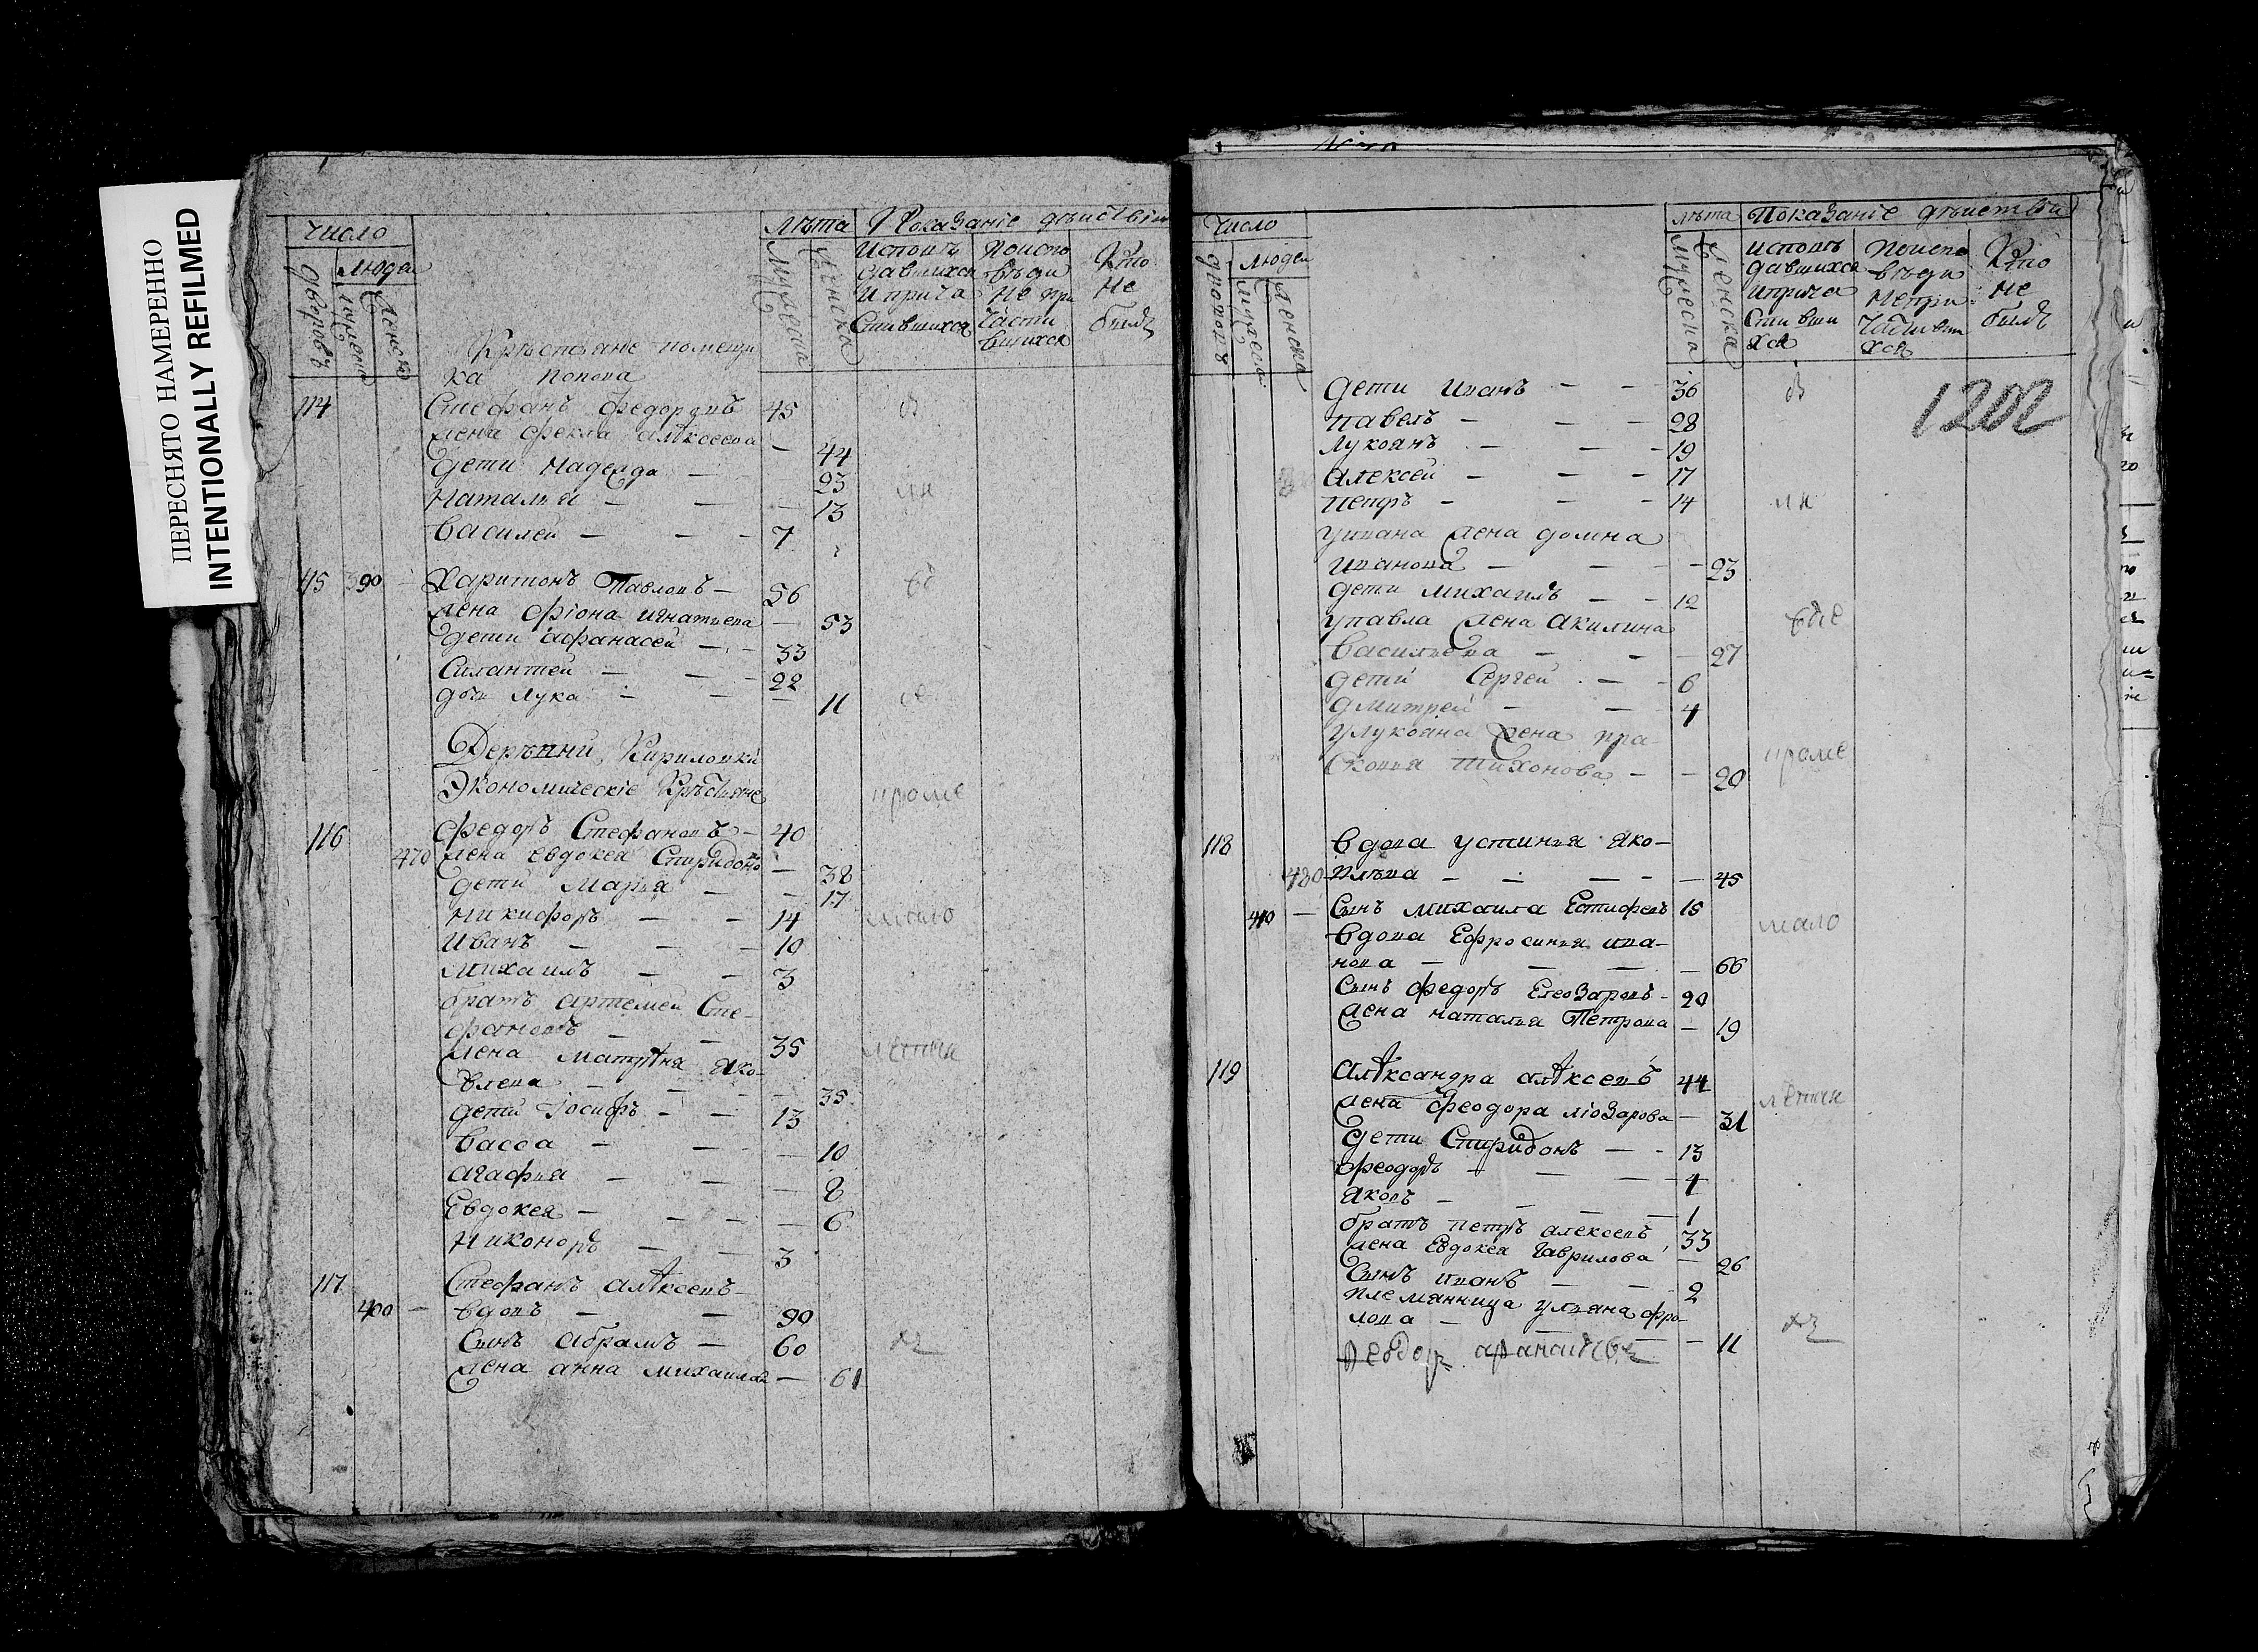 ПЕРЕСНЯТО НАМЕРЕННО
INTENTIONALLY REFILMED
Число
Людей
Дворовъ
Мужеска
Женска
Лѣта
Мужеска
Женска
Показаніе дѣиствіи
Исповѣ
давшихся
и прича
стившихся
По испо
вѣди
не при
части
вшихся
Кто
не
былъ
Крѣстьяне помещи
ка Попова
114
Стефанъ Федоровъ 45
Жена Фекла Алѣксеева — 44
Дети Надежда — 23
Наталья — — 13
Василей — — 7
115 390 Харитонъ Павловъ — 56
Жена Фіона Игнатиева — 53
Дети Афанасей — 33
Силантей — — 22
дочь Лука — — 11
Деръвни Кириловки
Экономическіе Кръстьяне
116 Федоръ Стефановъ — 40
470 Жена Евдокея Спиридоно — 38
Дети Марья — — 17
Никифоръ — — 14
Иванъ — — 10
Михаилъ — — 3
братъ Артемей Сте-
фановъ — — 35
Жена Матрѣна Яко-
влева — — — 35
Дети Іосифъ — — 13
Васса — — — 10
Агафья — — — 8
Евдокея — — — 6
Никоноръ — — 3
117 Стефанъ Алѣксевъ
400 — вдовъ — — 90
Сынъ Абрамъ — 60
Жена Анна Михаилова — 61
во
ии
ве
се
проме
мало
летии
хъ
Число
Людей
Дворовъ
Мужеска
Женска
Лѣта
Мужеска
Женска
Показаніе дѣиствіи
Исповѣ
давшихся
и прича
стивши
хся
По испо
вѣди
не при
частивши
хся
Кто
не
былъ
1202
Дети Иванъ — — 36
Павелъ — — — 28
Лукоянъ — — — 19
Алексей — — — 17
Петръ — — — 14
У Ивана жена Домна
Иванова — — — 23
Дети Михаилъ — — 12
У Павла жена Акилина
Васильева — — — 27
Дети Сергей — — 6
Дмитрей — — 4
У Лукояна жена Пра-
сковья Тихонова — — 20
118 вдова Устинья Яко-
480 влѣва — — — — 45
410 — Сынъ Михаила Евтифевъ 15
вдова Ефросинья Ива-
нова — — — — 66
Сынъ Федоръ Елеозаровъ — 20
Жена Наталья Петрова — 19
119 Алѣксандра Алѣксевъ 44
Жена Феодора Ліозарова — 31
Дети Спиридонъ — — 13
Феодоръ — — — 4
Яковъ — — — 1
братъ Петръ Алексевъ 33
Жена Евдокея Гаврилова — 26
Сынъ Иванъ — — 2
племянница Ульяна Фро-
лова — — — 11
Феодоръ Афанасьевъ
проме
мало
летии
хъ